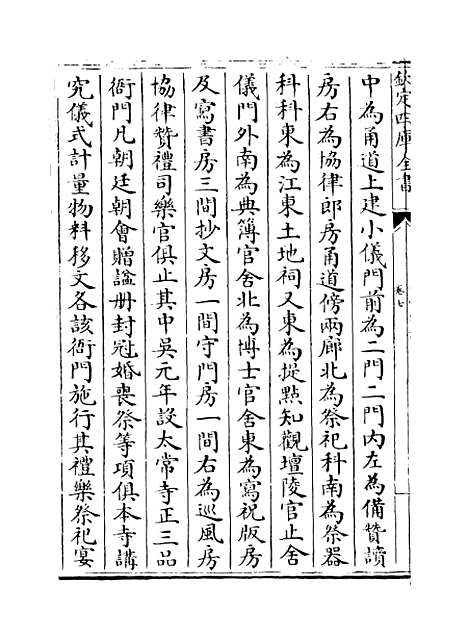 欽定四庫全書
卷七
中為甬道上建小儀門前為二門二門内左為備贊讀
房右為協律郎房甬道傍兩廊北為祭祀科南為祭器
科科東為江東土地祠又東為提點知觀壇陵官止舍
儀門外南為典簿官舍北為博士官舍東為寫祝版房
及寫書房三間抄文房一間守門房一間右為巡風房
協律贊禮司樂官俱止其中吳元年設太常寺正三品
衙門凡朝廷朝會贈諡册封冠婚喪祭等項俱本寺講
究儀式計量物料移文各該衙門施行其禮樂祭祀宴